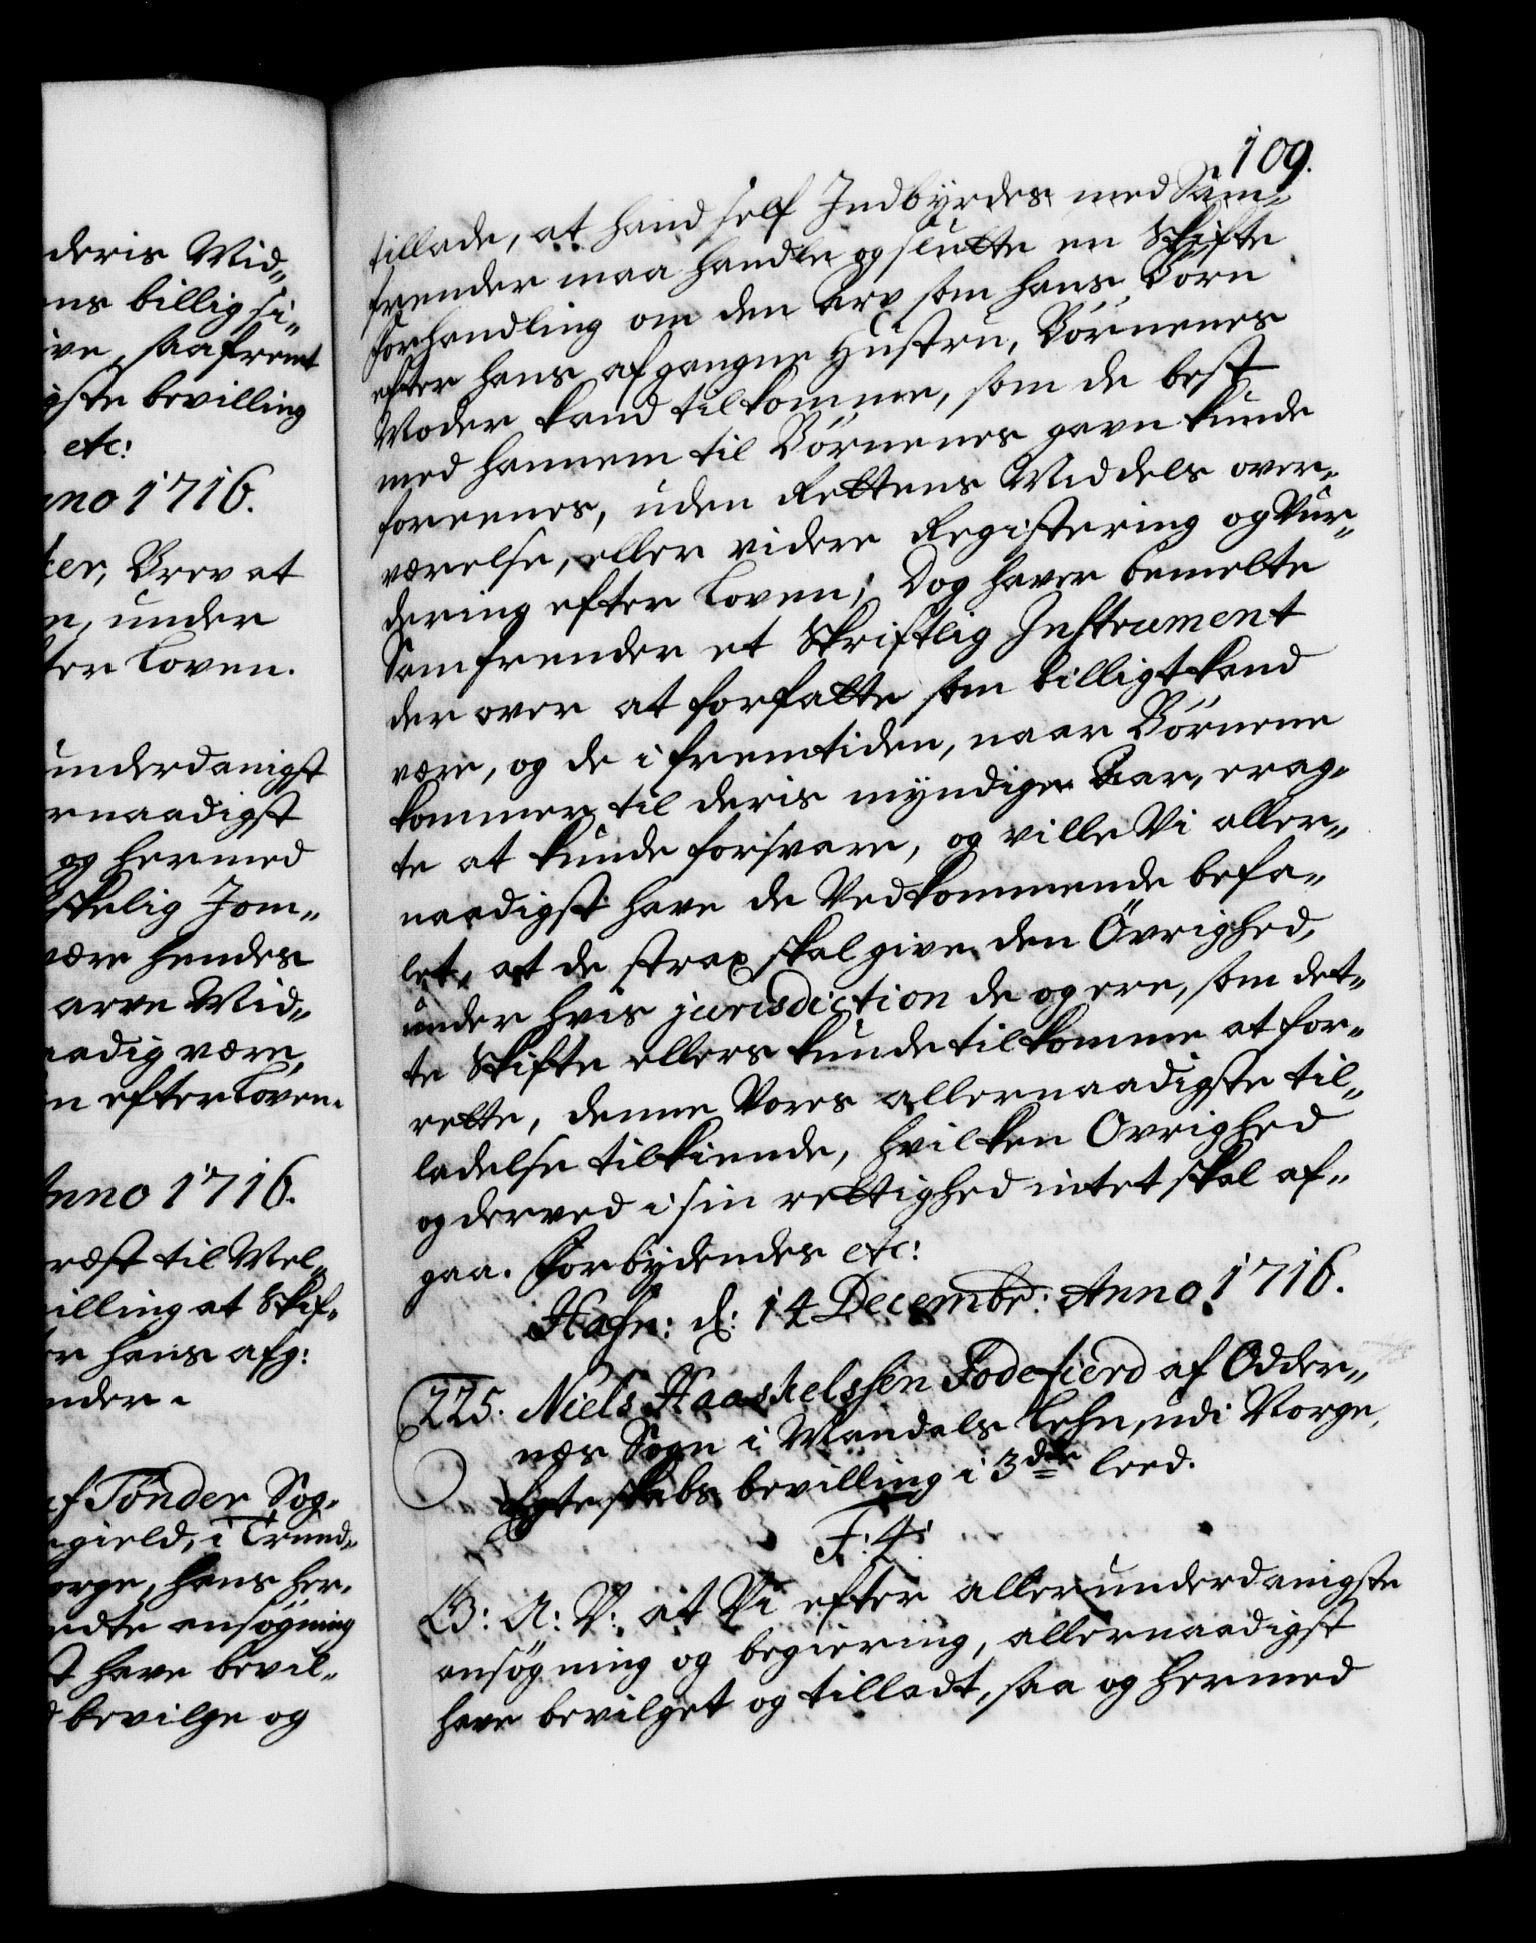 deris Mid„
ns billig si„
ive, saafremt
gste bevilling
etc:
nno 1716.
ker, Brev at
n, under
ter Loven.
underdanigst
rnaadigst
og hermed
skelig Jom„
være hendes
arve Mid„
aadig være,
n efter Loven.
Anno 1716.
ræst til Mel„
villing at Skif„
er hans afg:
nder.
af Tønder Sog„
gield, i Trund„
orge, hans her„
edte ansøgning
st have bevil„
d bevilge og
109.
tillade, at hand self Indbyrdes med Sam„
frender maa handle og slutte en Skifte
Forhandling om den Arv som hans Børn
efter hans afgangne Hustru, Børnenes
Moder kand tilkomme, som de best
med hannem til Børnenes gavn kunde
foreenes, uden Rettens Middels over„
værelse, eller videre Registering og Vur„
dering efter Loven; Dog haver bemelte
Samfrender et Skriftlig Instrument
der over at forfatte som billigt kand
være, og de i fremtiden, naar Børnene
kommer til deris myndige Aar, erag„
te at kunde forsvare, og ville Vi aller„
naadigst have de Vedkommende befa„
let, at de strax skal give den Övrighed,
under hvis jurisdiction de og ere, som det„
te Skifte ellers kunde tilkomme at for„
rette, denne Vores allernaadigste til„
ladelse tilkiende, hvilken Ovrighed
og derved i sin rettighed intet skal af„
gaa. Forbydendes etc:
Hafn: d: 14 Decembr: Anno 1716.
225. Niels Haaskelssen Fodefierd af Odder„
næs Sogn i Mandals Lehn udi Norge,
Egteskabs bevilling i 3die leed.
F: 4:
G: A: V: at Vi efter allerunderdanigste
ansøgning og begiering, allernaadigst
have bevilget og tilladt, saa og hermed